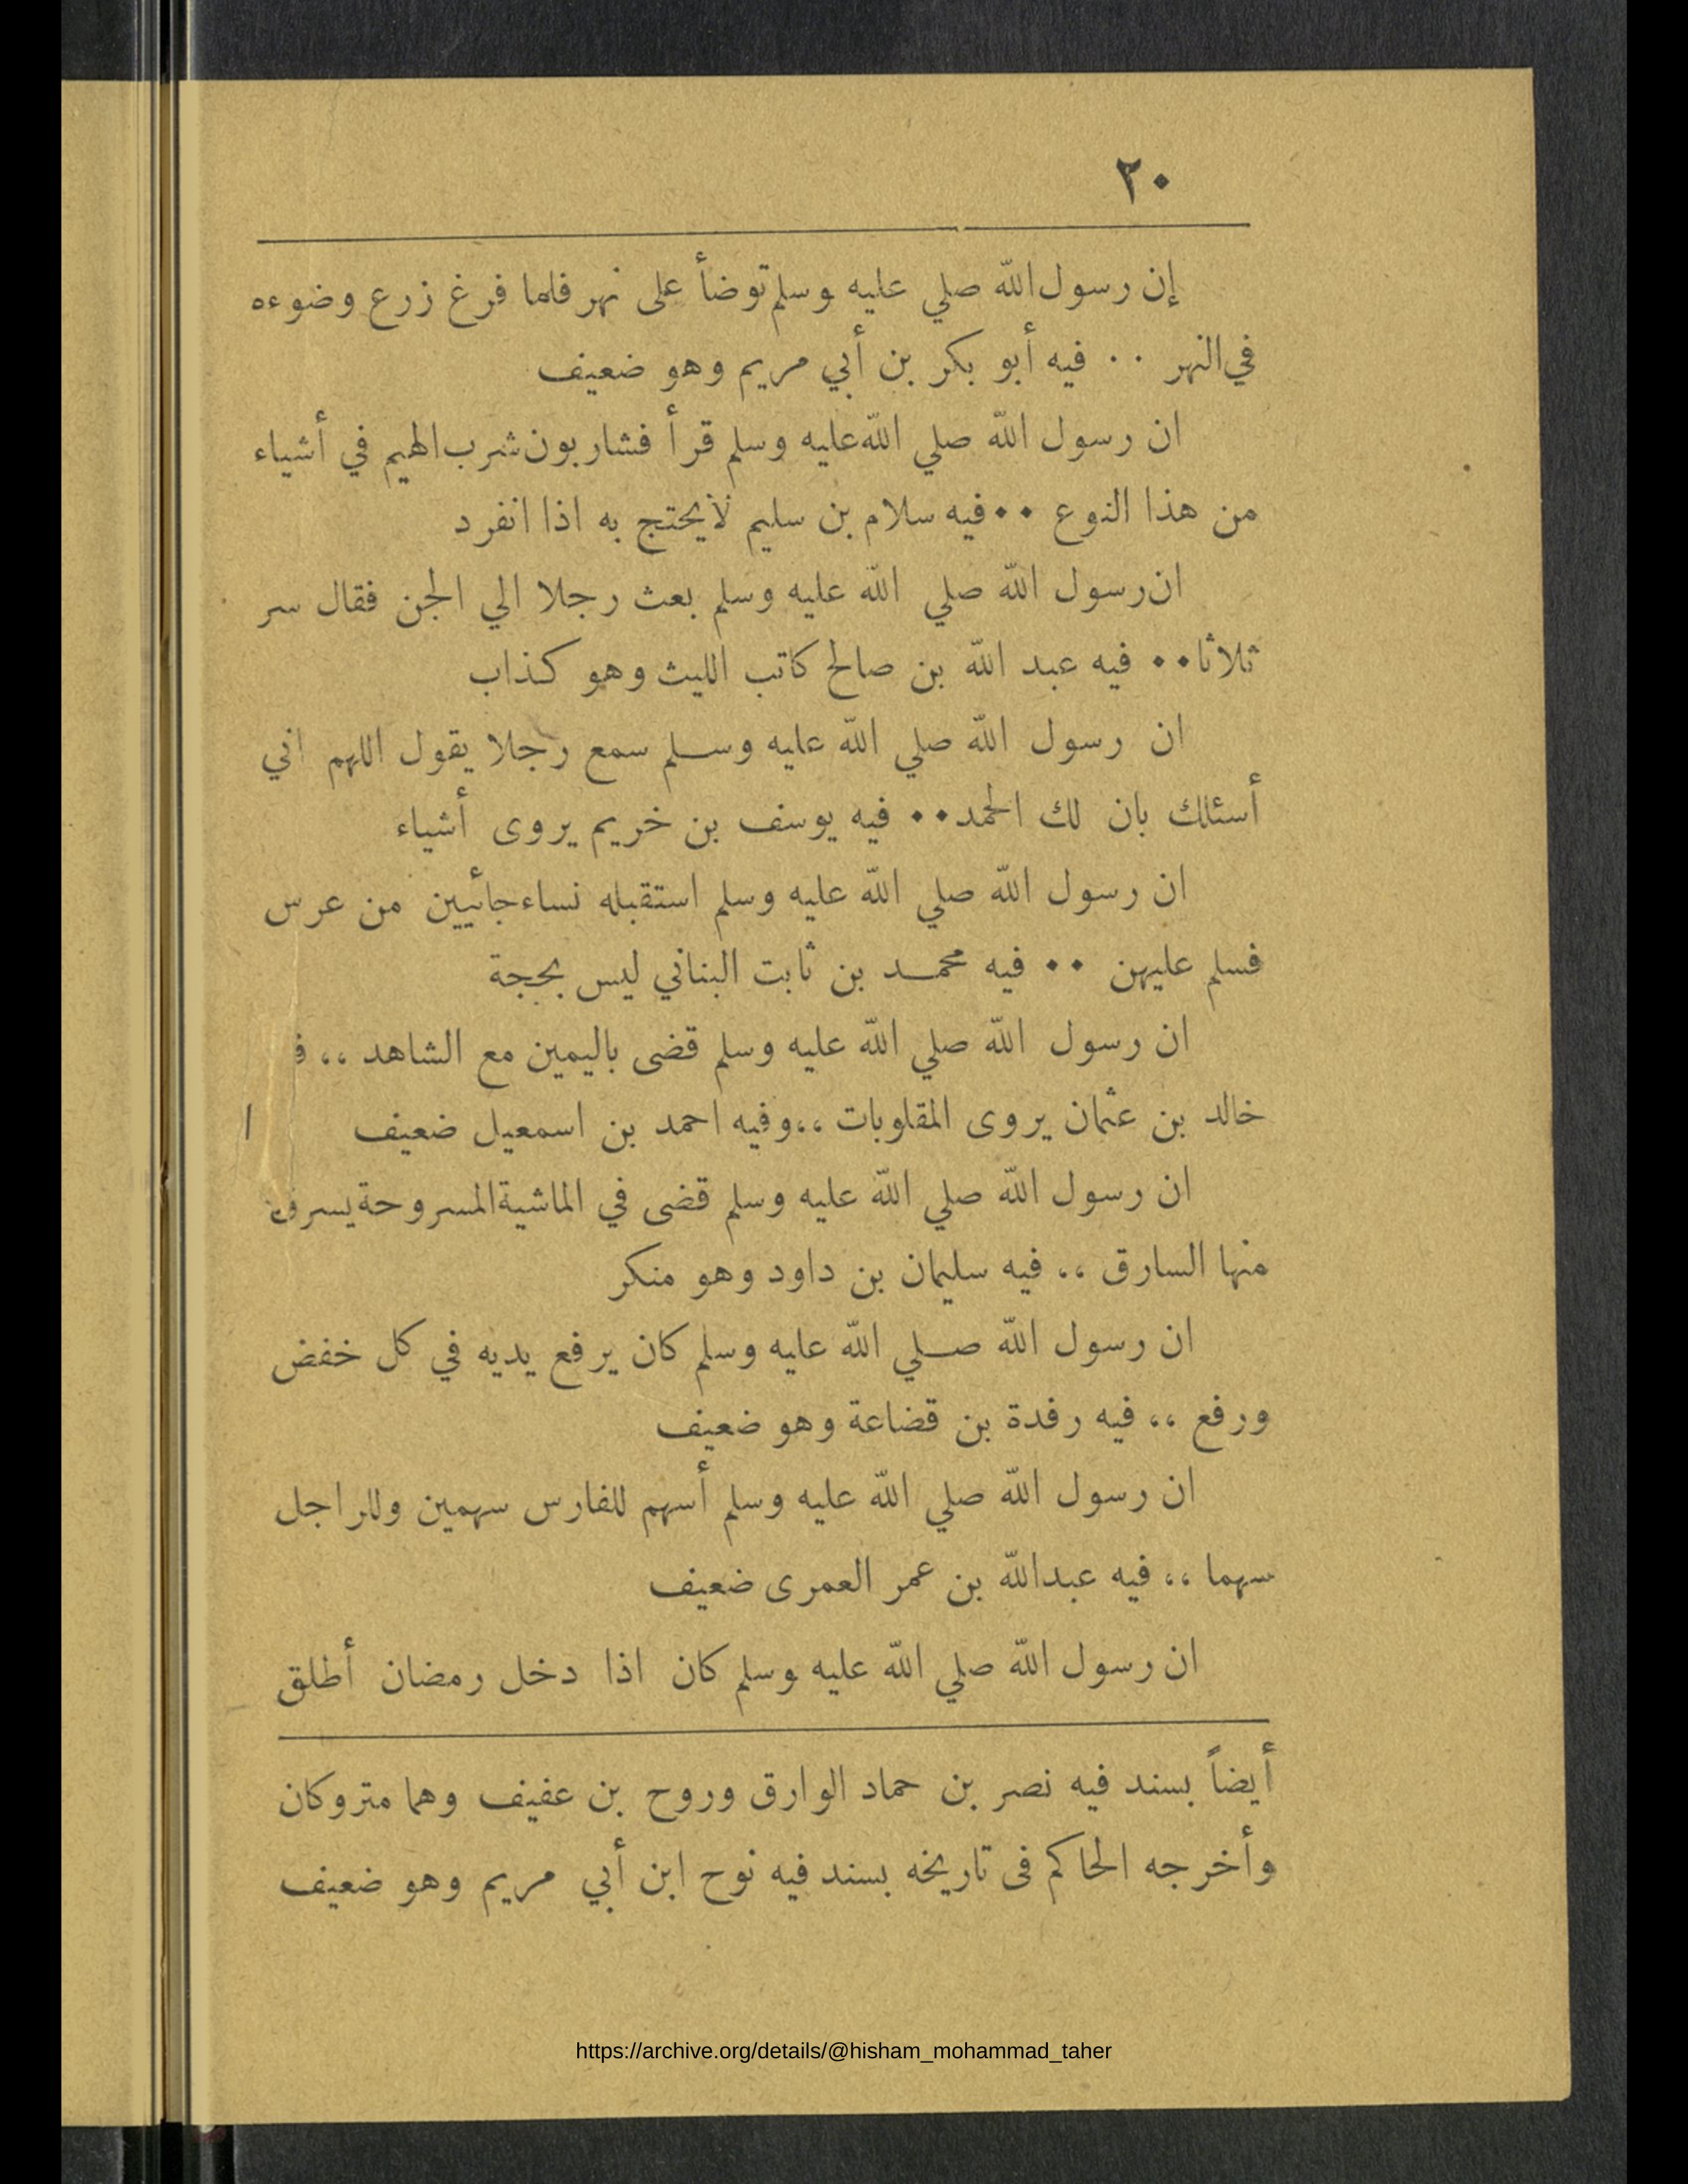 ٢٠
إن رسول الله صلي عليه وسلم توضأ على نهر فلما فرغ زرع وضوءه
في النهر ٠٠ فيه أبو بكر بن أبي مريم وهو ضعيف
ان رسول الله صلي الله عليه وسلم قرأ فشاربون شرب الهيم في أشياء
من هذا النوع ٠٠ فيه سلام بن سليم لا يحتج به اذا انفرد
ان رسول الله صلي الله عليه وسلم بعث رجلا الي الجن فقال سر
ثلاثا ٠٠ فيه عبد الله بن صالح كاتب الليث وهو كذاب
ان رسول الله صلي الله عليه وسلم سمع رجلا يقول اللهم اني
أسئلك بان لك الحمد ٠٠ فيه يوسف بن خريم يروى أشياء
ان رسول الله صلي الله عليه وسلم استقبله نساء جائيين من عرس
فسلم عليهن ٠٠ فيه محمد بن ثابت البناني ليس بحجة
ان رسول الله صلي الله عليه وسلم قضى باليمين مع الشاهد ،،
خالد بن عثمان يروى المقلوبات ،، وفيه احمد بن اسمعيل ضعيف
ان رسول الله صلي الله عليه وسلم قضى في الماشية المسروحة
منها السارق ،، فيه سليمان بن داود وهو منكر
ان رسول الله صلي الله عليه وسلم كان يرفع يديه في كل خفض
ورفع ،، فيه رفدة بن قضاعة وهو ضعيف
ان رسول الله صلي الله عليه وسلم أسهم للفارس سهمين وللراجل
سهما ،، فيه عبدالله بن عمر العمرى ضعيف
ان رسول الله صلي الله عليه وسلم كان اذا دخل رمضان أطلق
أيضاً بسند فيه نصر بن حماد الوارق وروح بن عفيف وهما متروكان
وأخرجه الحاكم فى تاريخه بسند فيه نوح ابن أبي مريم وهو ضعيف
https://archive.org/details/@hisham_mohammad_taher